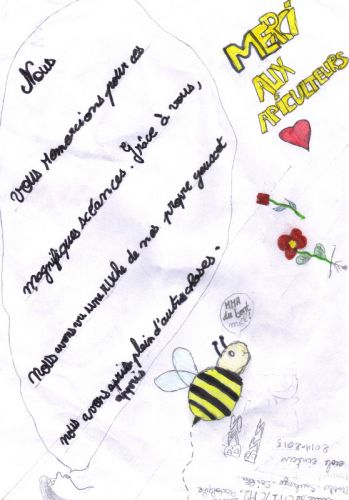 MERCI
AUX
APICULTEURS
Nous
vous remercions pour ces
magnifiques séances. Grâce à vous,
Nous avons vu une ruche de nos propre yeux et
nous avons appris plein d'autre choses.
MMM
du bon
miel
2014-2015